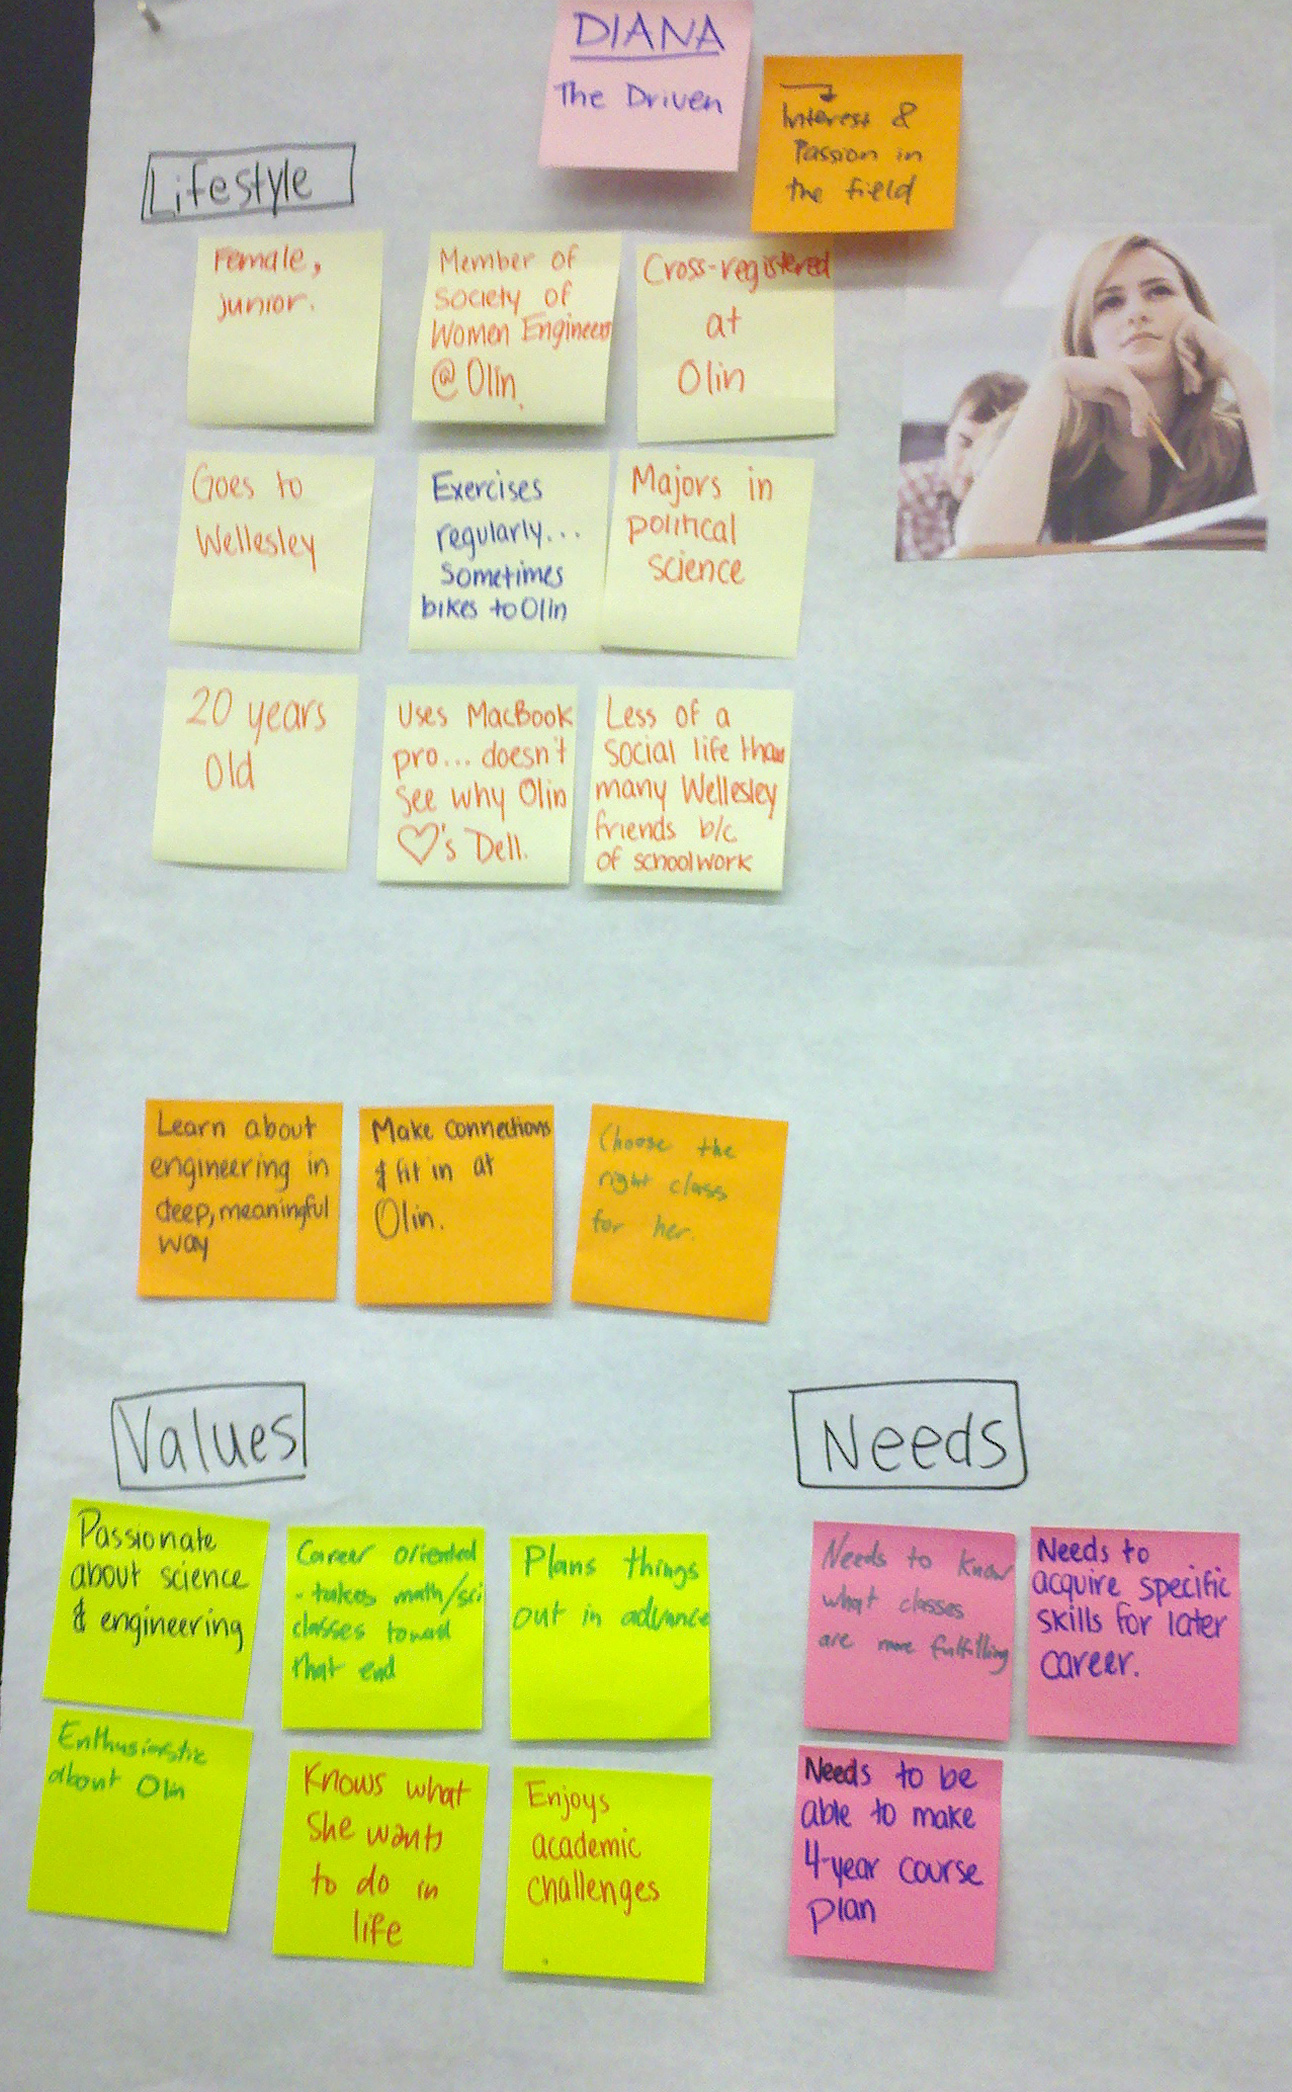 DIANA
The Driven
Interest &
Passion in
the field
Lifestyle
Female,
junior.
Member of
Society of
Women Engineers
@ Olin.
Cross-registered
at
Olin
Goes to
Wellesley
Exercises
regularly...
Sometimes
bikes to Olin
Majors in
political
science
20 years
old
Uses MacBook
pro... doesn't
see why Olin
♡'s Dell.
Less of a
social life than
many Wellesley
friends b/c
of schoolwork
Learn about
engineering in
deep, meaningful
way
Make connections
& fit in at
Olin.
Choose the
right class
for her.
Values
Passionate
about science
& engineering
Career oriented
- takes math/sci
classes toward
that end
Plans things
out in advance
Enthusiastic
about Olin
Knows what
she wants
to do in
life
Enjoys
academic
challenges
Needs
Needs to know
what classes
are more fulfilling
Needs to
acquire specific
skills for later
career.
Needs to be
able to make
4-year course
plan